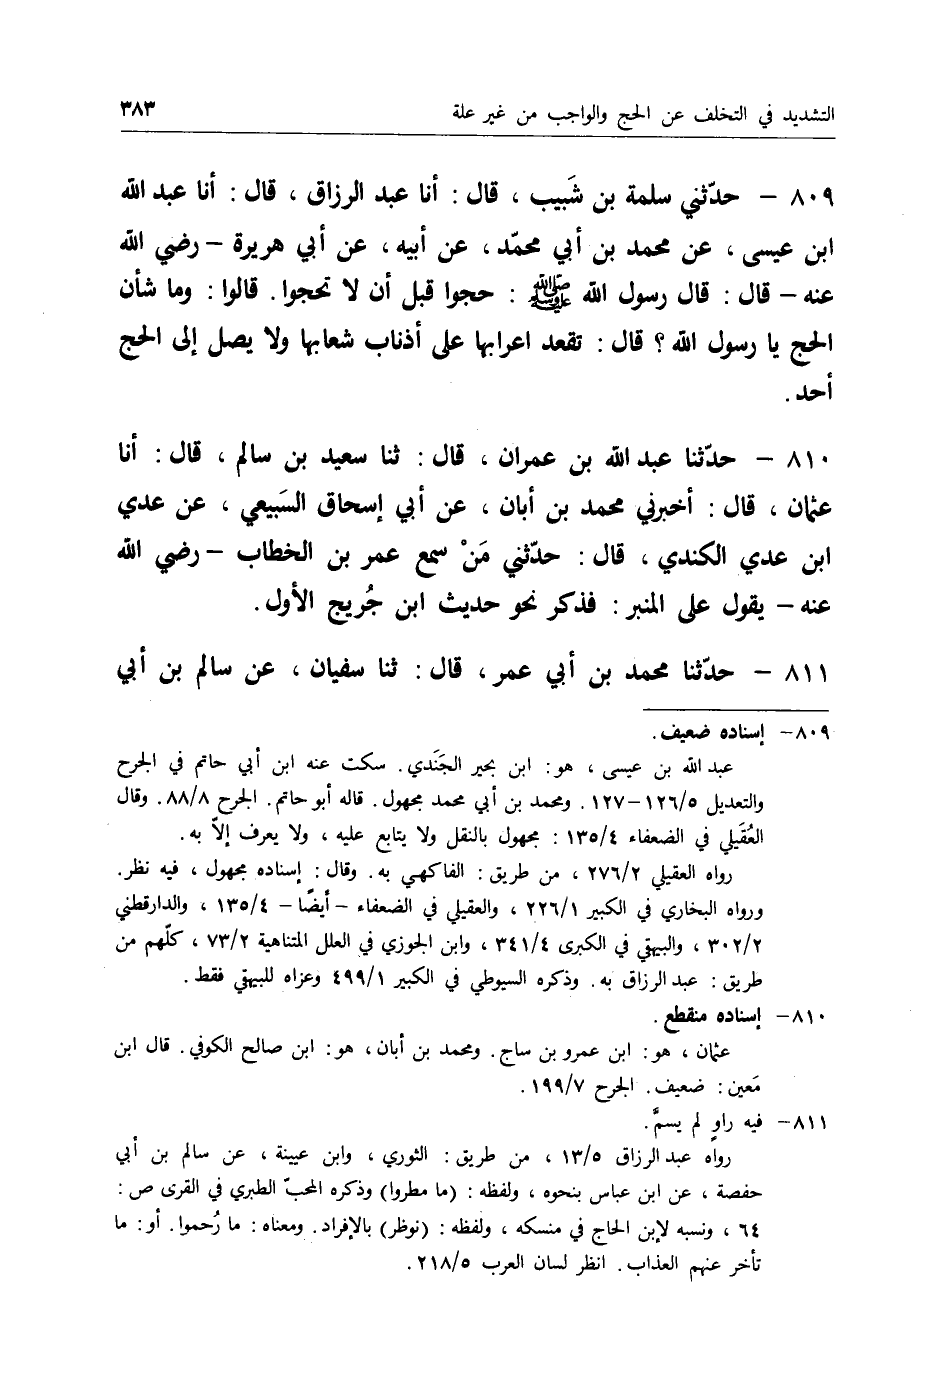 التشديد في التخلف عن الحج والواجب من غير علة ٣٨٣
٨٠٩ – حدّثني سلمة بن شَبيب ، قال : أنا عبد الرزاق ، قال : أنا عبد الله
ابن عيسى ، عن محمد بن أبي محمّد ، عن أبيه ، عن أبي هريرة – رضي الله
عنه – قال : قال رسول الله ﷺ : حجوا قبل أن لا تحجوا. قالوا : وما شأن
الحج يا رسول الله ؟ قال : تقعد اعرابها على أذناب شعابها ولا يصل إلى الحج
أحد.
٨١٠ – حدّثنا عبد الله بن عمران ، قال : ثنا سعيد بن سالم ، قال : أنا
عثمان ، قال : أخبرني محمد بن أبان ، عن أبي إسحاق السَبيعي ، عن عدي
ابن عدي الكندي ، قال : حدّثني مَنْ سمع عمر بن الخطاب – رضي الله
عنه – يقول على المنبر : فذكر نحو حديث ابن جُريج الأول.
٨١١ – حدّثنا محمد بن أبي عمر ، قال : ثنا سفيان ، عن سالم بن أبي
٨٠٩– إسناده ضعيف.
عبد الله بن عيسى ، هو : ابن بحير الجَنَدي. سكت عنه ابن أبي حاتم في الجرح
والتعديل ١٢٦/٥–١٢٧. ومحمد بن أبي محمد مجهول. قاله أبو حاتم. الجرح ٨٨/٨. وقال
العُقَيلي في الضعفاء ١٣٥/٤ : مجهول بالنقل ولا يتابع عليه ، ولا يعرف إلاّ به.
رواه العقيلي ٢٧٦/٢ ، من طريق : الفاكهي به. وقال : إسناده مجهول ، فيه نظر.
ورواه البخاري في الكبير ٢٢٦/١ ، والعقيلي في الضعفاء –أيضًا– ١٣٥/٤ ، والدارقطني
٣٠٢/٢ ، والبيهقي في الكبرى ٣٤١/٤ ، وابن الجوزي في العلل المتناهية ٧٣/٢ ، كلّهم من
طريق : عبد الرزاق به. وذكره السيوطي في الكبير ٤٩٩/١ وعزاه للبيهقي فقط.
٨١٠– إسناده منقطع.
عثمان ، هو : ابن عمرو بن ساج. ومحمد بن أبان ، هو : ابن صالح الكوفي. قال ابن
مَعين : ضعيف. الجرح ١٩٩/٧.
٨١١– فيه راوٍ لم يسمَّ.
رواه عبد الرزاق ١٣/٥ ، من طريق : الثوري ، وابن عيينة ، عن سالم بن أبي
حفصة ، عن ابن عباس بنحوه ، ولفظه : (ما مطروا) وذكره المحبّ الطبري في القرى ص :
٦٤ ، ونسبه لإبن الحاج في منسكه ، ولفظه : (نوظر) بالإفراد. ومعناه : ما رُحموا. أو : ما
تأخر عنهم العذاب. انظر لسان العرب ٢١٨/٥.